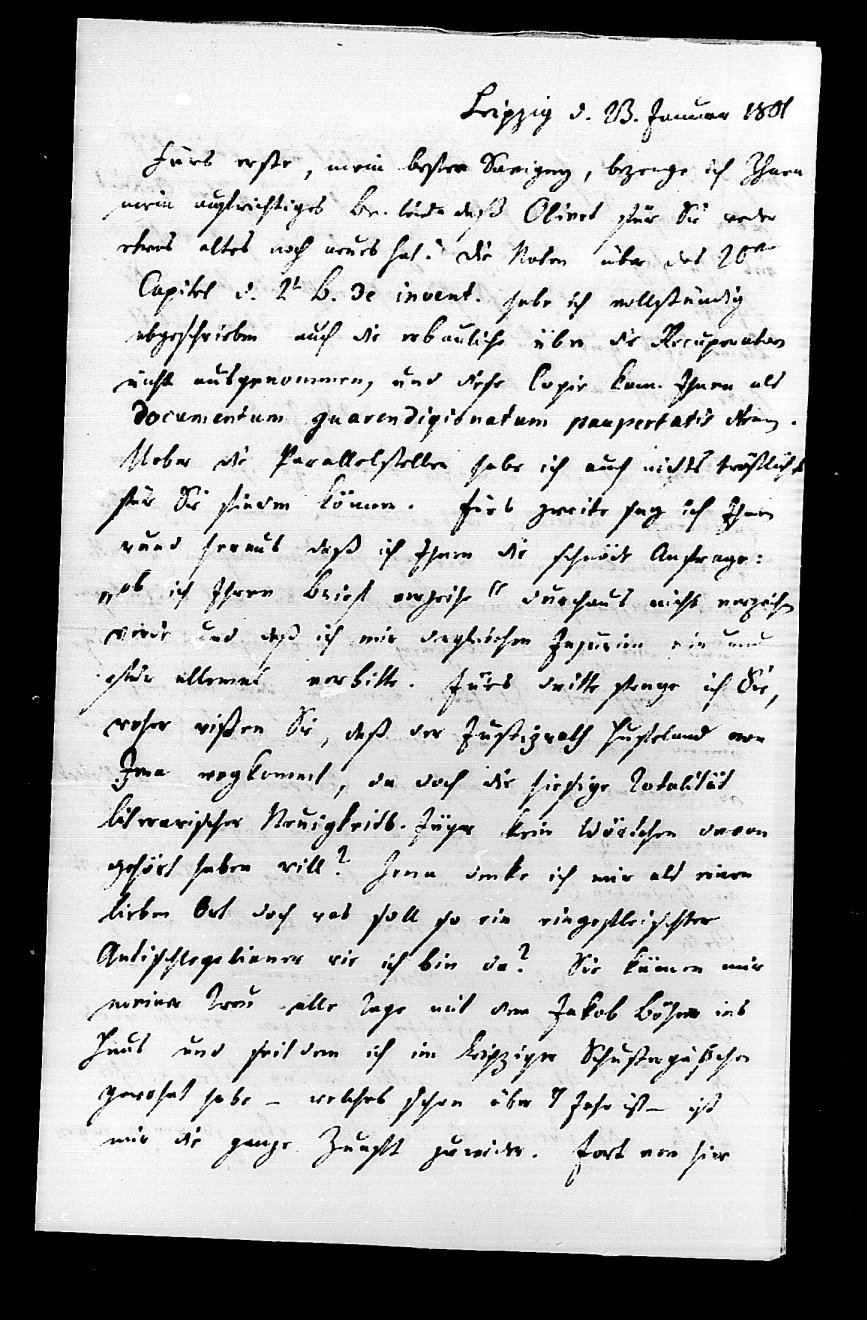 Leipzig d. 23. Januar 1801
Fürs erste, mein bester Savigny, bezeuge ich Ihnen
mein aufrichtiges Beileid daß Olivet für Sie weder
etwas altes noch neues hat. Die Noten über das 20te
Capitel d. 2t B. de invent. habe ich vollständig
abgeschrieben auch die erbauliche über die Recuperatores
nicht ausgenommen, und diese Copie kann Ihnen als
documentum guarendigionatum paupertatis dienen.
Ueber die Parallelstellen habe ich auch nichts tröstliches
für Sie finden können. Fürs zweite sag ich Ihnen
rund heraus daß ich Ihnen die schnöde Anfrage:
„ob ich Ihren Brief verzeihe“ durchaus nicht verzeihen
werde und daß ich mir dergleichen Injurien ein und
für allemal verbitte. Fürs dritte frage ich Sie,
woher wißen Sie, daß der Justizrath Hufeland von
Jena wegkommt, da doch die hiesige Totalität
literarischer Neuigkeits-Jäger kein Wörtchen davon
gehört haben will? Jena denke ich mir als einen
lieben Ort doch was soll so ein eingefleischter
Antischlegelianer wie ich bin da? Sie kämen mir
meiner Treu alle Tage mit dem Jakob Böhm ins
Haus und seitdem ich im Leipziger Schustergäßchen
gewohnt habe – welches schon über 7 Jahr ist – ist
mir die ganze Zunft zuwider. Fort von hier